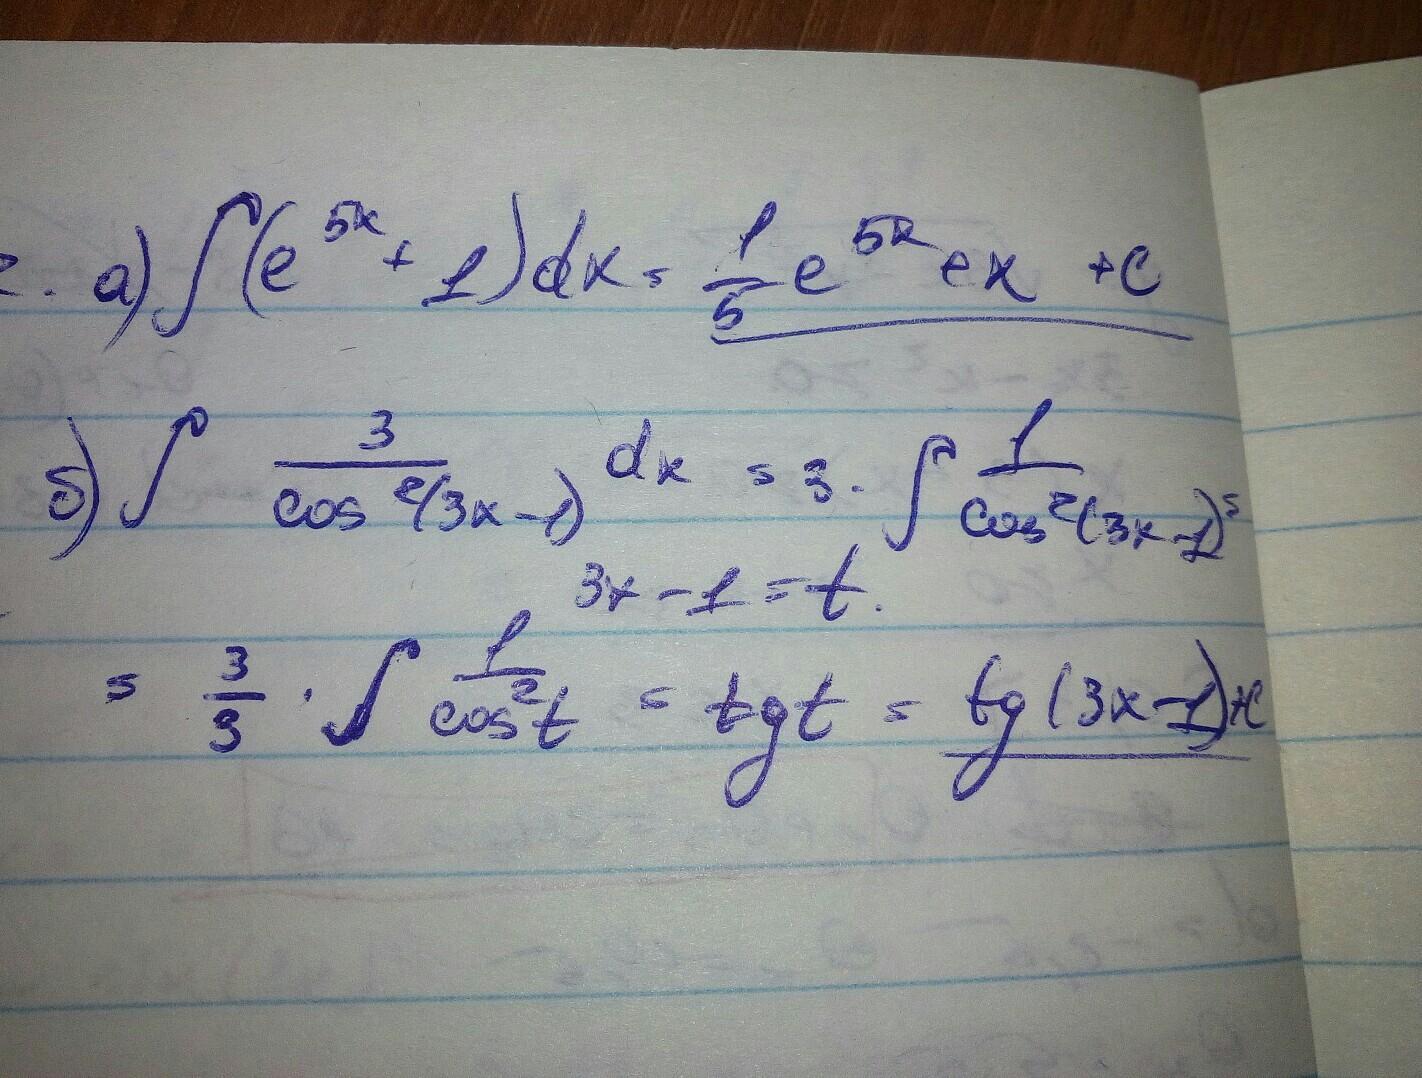 2. а) ∫(e^{5x} + 1)dx = \frac{1}{5} e^{5x} ex + c
б) ∫ \frac{3}{cos^2(3x-1)} dx = 3 · ∫ \frac{1}{cos^2(3x-1)} =
3x - 1 = t.
= \frac{3}{3} · ∫ \frac{1}{cos^2 t} = tg t = tg (3x-1)+c